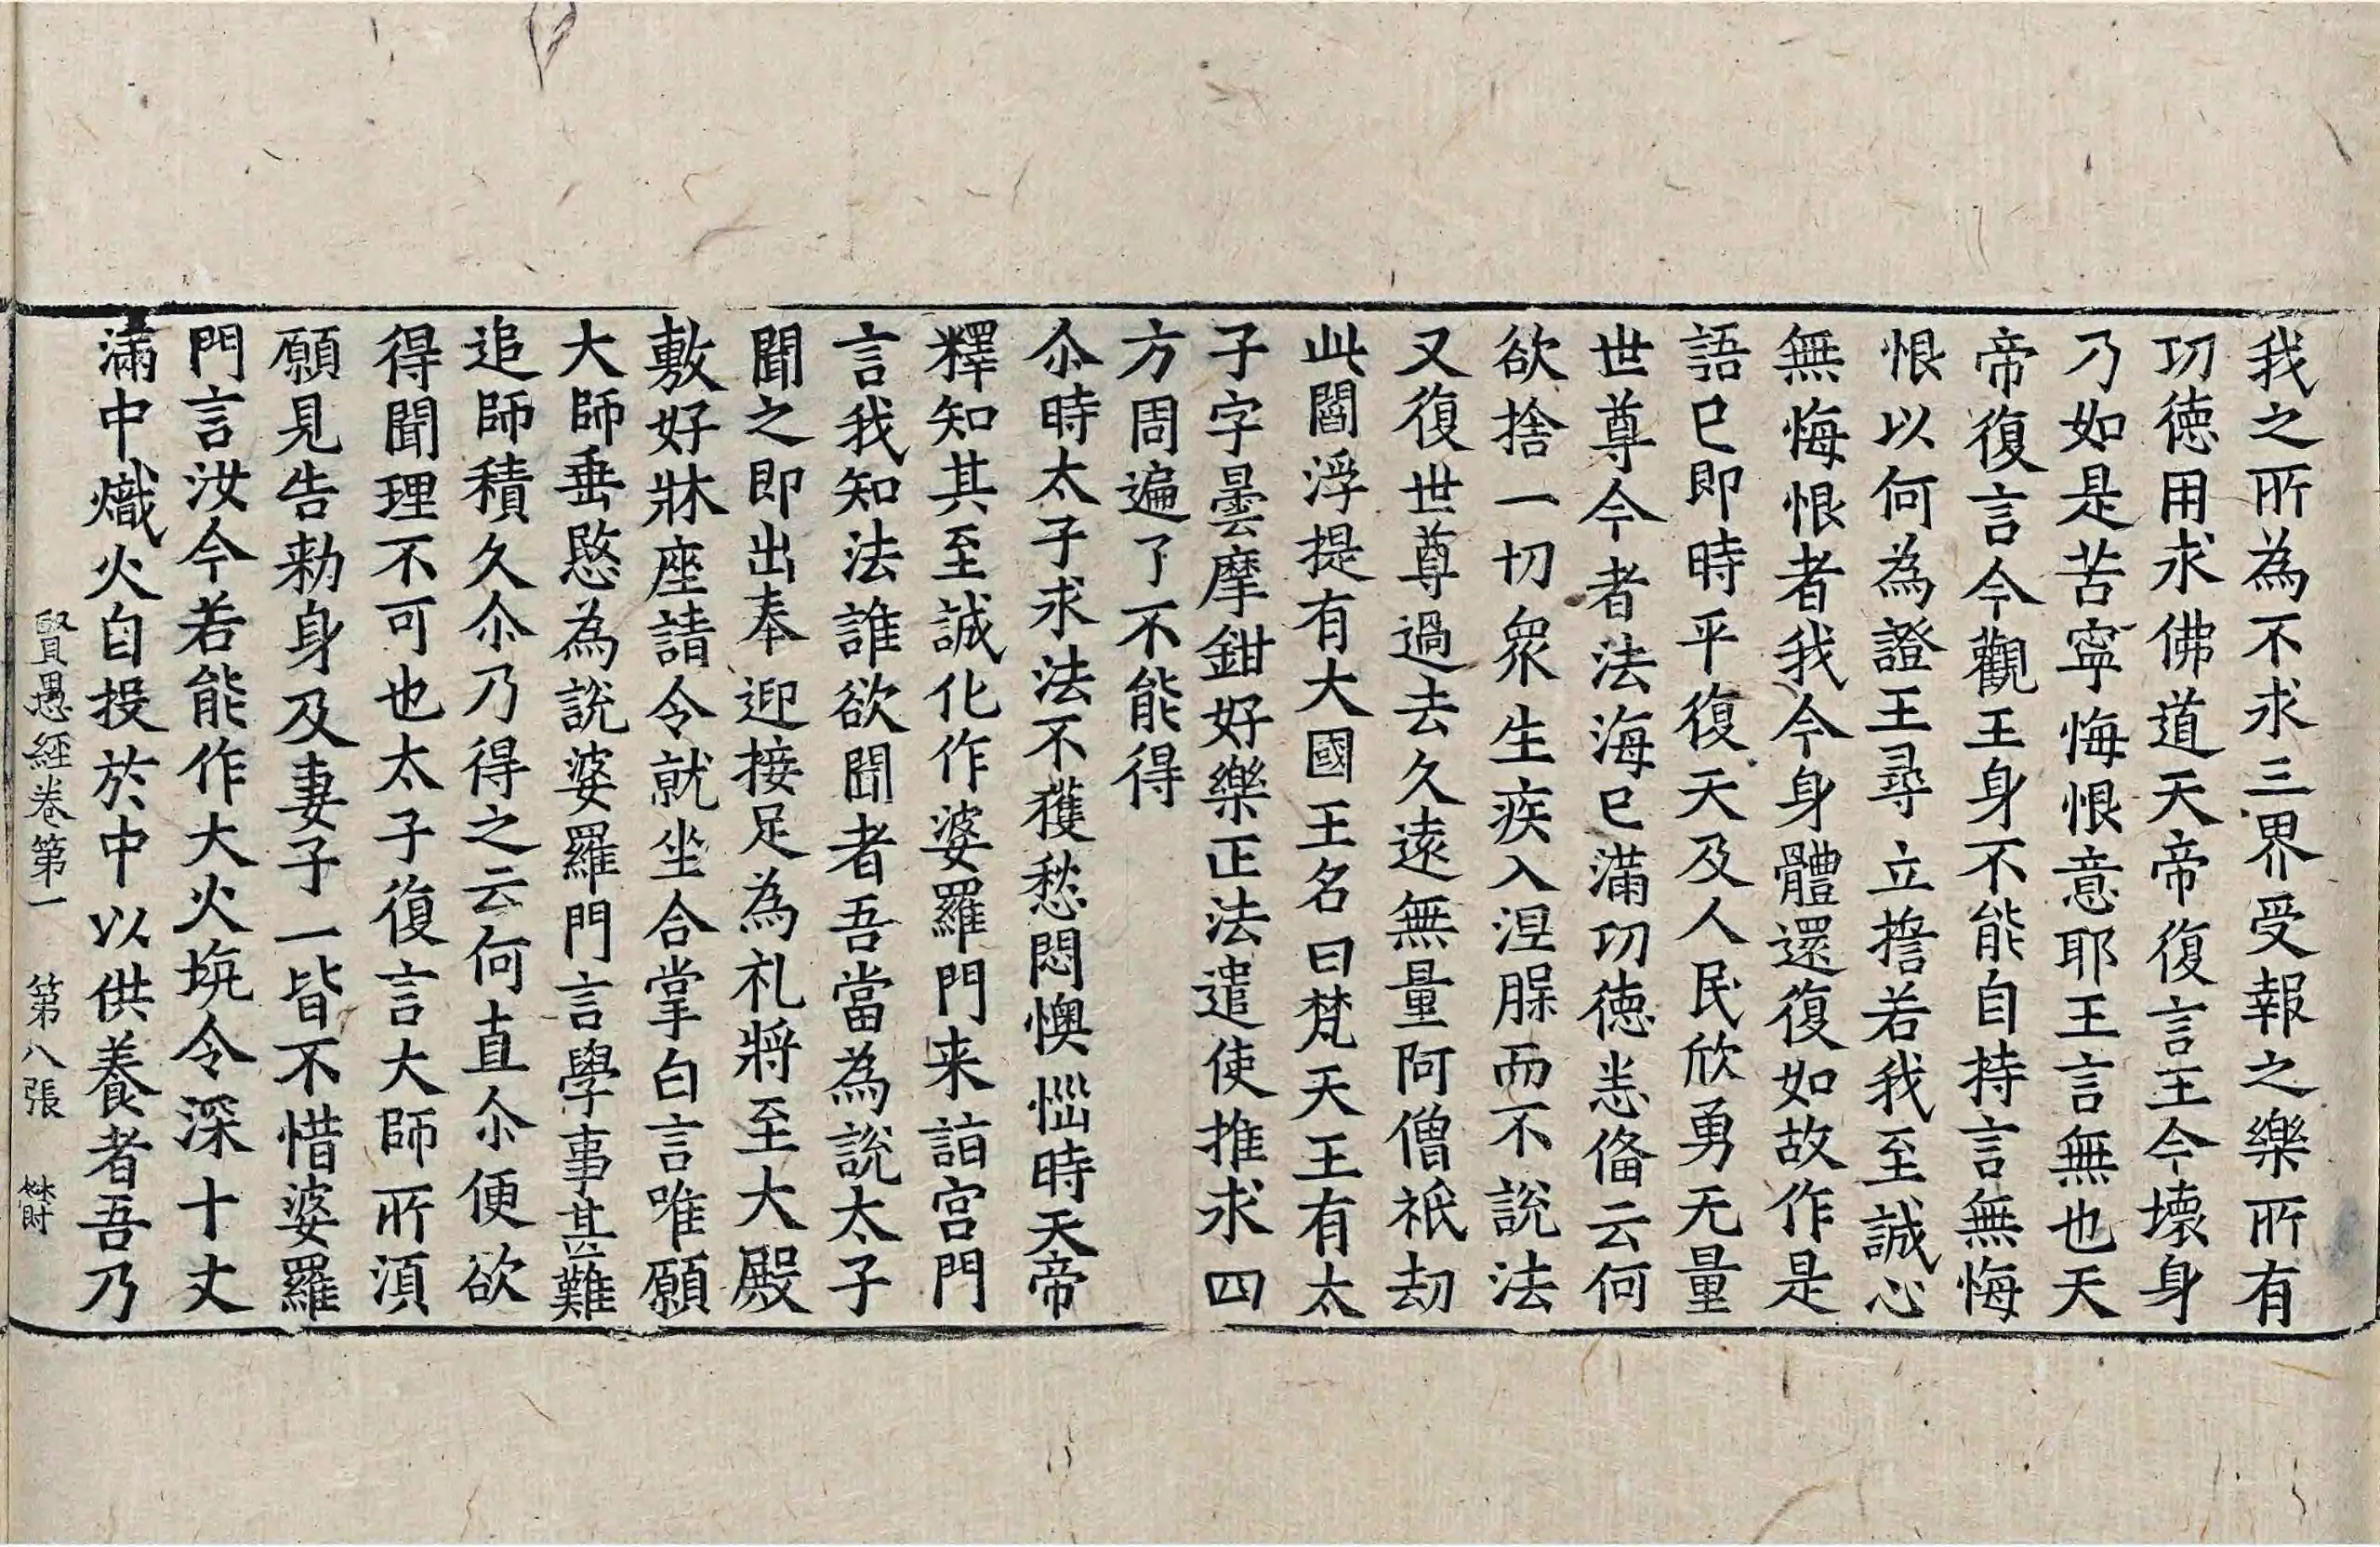 我之所為不求三界受報之樂所有
功德用求佛道天帝復言王今壞身
乃如是苦寧悔恨意耶王言無也天
帝復言今觀王身不能自持言無悔
恨以何為證王尋立擔若我至誠心
無悔恨者我今身體還復如故作是
語已即時平復天及人民欣勇无量
世尊今者法海已滿功德恙俻云何
欲捨一切衆生疾入涅脲而不說法
又復世尊過去久遠無量阿僧祇劫
此閻浮提有大國王名曰梵天王有太
子字曇摩鉗好樂正法遣使推求四
方周遍了不能得
尒時太子求法不獲愁悶懊惱時天帝
釋知其至誠化作婆羅門来詣宮門
言我知法誰欲聞者吾當為說太子
聞之即出奉迎接足為礼將至大殿
敷好牀座請令就坐合掌白言唯願
大師垂愍為說婆羅門言學事甚難
追師積久尒乃得之云何直尒便欲
得聞理不可也太子復言大師所須
願見告勑身及妻子一皆不惜婆羅
門言汝今若能作大火坑令深十丈
滿中熾火自投於中以供養者吾乃
賢愚經卷第一 第八張